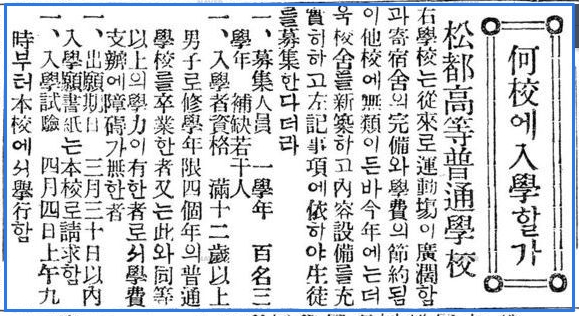 何校에入學할가
松都高等普通學校
右學校는從來로運動塲이廣濶함
과寄宿舍의完備와學費의節約됨
이他校에無類이든바今年에는더
욱校舍를新築하고內容設備를充
實히하고左記事項에依하야生徒
를募集한다더라
一、募集人員 一學年 百名三
學年 補缺若干人
一、入學者資格 滿十二歲以上
男子로修學年限四個年의普通
學校를卒業한者又는此와同等
以上의學力이有한者로서學費
支辦에障碍가無한者
一、出願期日 三月三十日以內
入學願書紙는本校로請求함
一、入學試驗 四月四日上午九
時부터本校에서擧行함